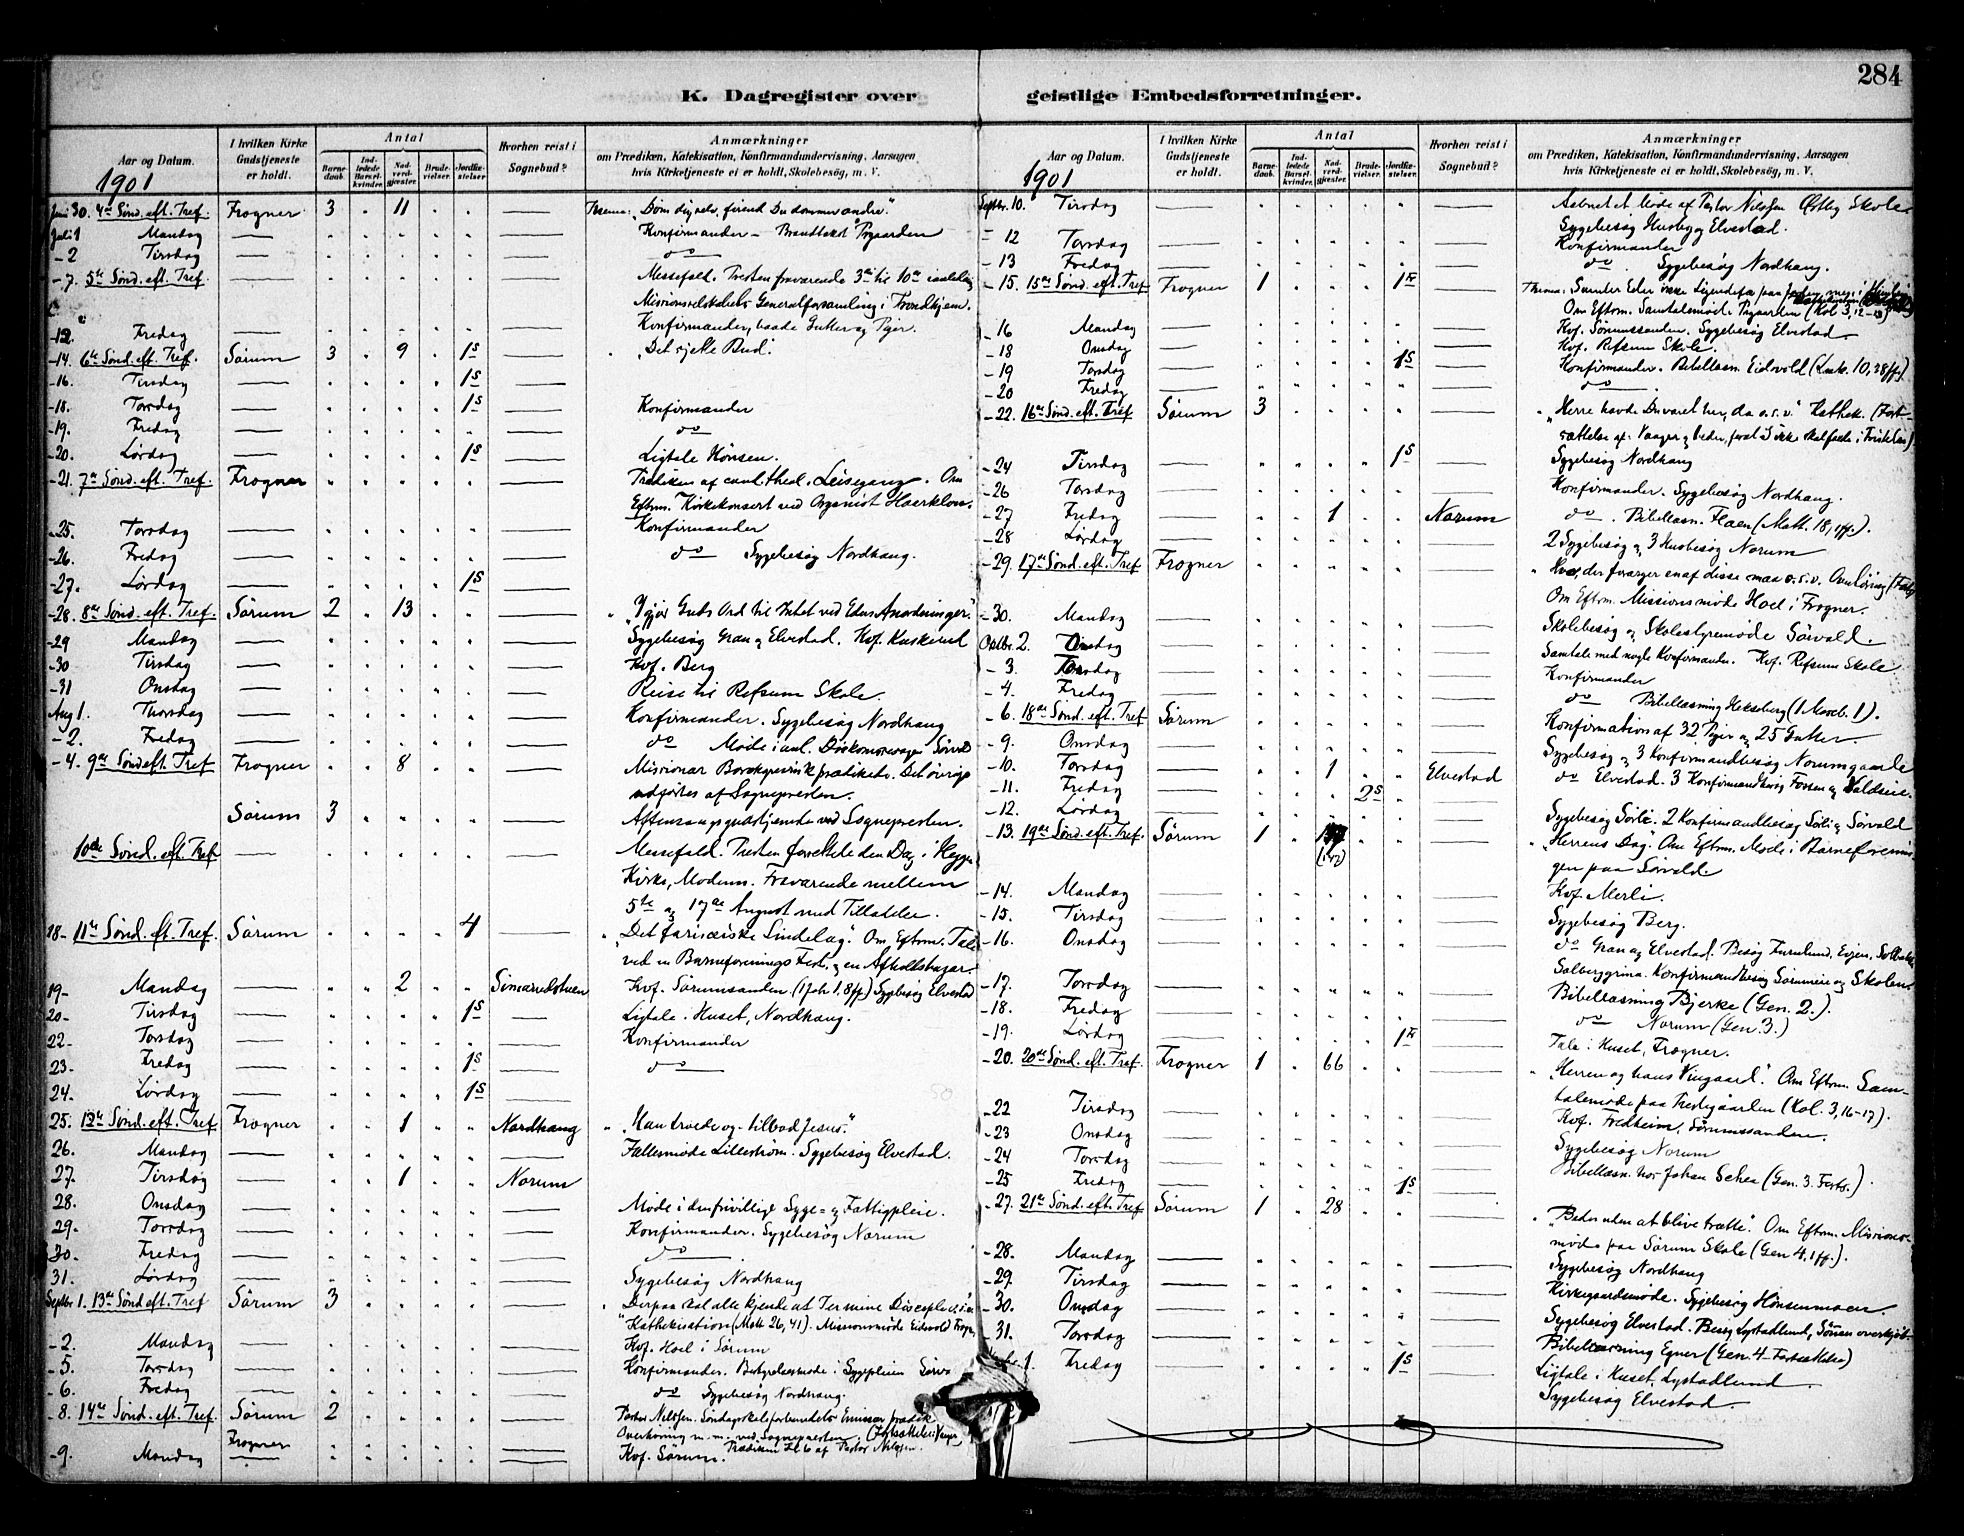 284
K. Dagregister over
geistlige Embedsforretninger.
Aar og Datum.
1901
I hvilken Kirke Gudstjeneste er holdt.
Antal
Barnedaab.
Indledede Barselkvinder.
Nadverdgjæster.
Brudevielser.
Jordfæstelser.
Hvorhen reist i Sognebud?
Anmærkninger
om Prædiken, Katekisation, Konfirmandundervisning, Aarsagen
hvis Kirketjeneste ei er holdt, Skolebesøg, m. V.
Juni 30. 4de Sønd. eft. Tref. Frogner 3 11 Thema: "Døm dig selv, førend Du dømmer andre."
Juli 1 Mandag Konfirmander –
- 2 Tirsdag do
- 7. 5te Sønd. eft. Tref. Messefald. Presten fraværende 3die til 10de
Missionsselskabets Generalforsamling i Trondhjem.
- 12 Fredag Konfirmander, baade Gutter og Piger.
- 14. 6te Sønd. eft. Tref. Sørum 3 9 1S "Det sjette Bud".
- 16. Tirsdag 1S
- 18. Torsdag 1S Konfirmander
- 19. Fredag do
- 20. Lørdag 1S Ligtale Hønsen.
- 21. 7de Sønd. eft. Tref. Frogner Prædiken af cand. theol. Om
Eftm. Kirkekonsert ved Organist
- 25. Torsdag Konfirmander
- 26. Fredag do Sygebesøg Nordhaug.
- 27. Lørdag 1S
- 28. 8de Sønd. eft. Tref. Sørum 2 13 "I gjør Guds Ord til Intet ved Eders Anordninger".
- 29 Mandag Sygebesøg Gran og Elvestad. Kof.
- 30 Tirsdag Kof. Berg
- 31 Onsdag Reise til Refsum Skole.
Aug 1. Thorsdag Konfirmander. Sygebesøg Nordhaug
- 2. Fredag do Møde i anl.
- 4. 9de Sønd eft. Tref Frogner 8 Missionær prædikede. Det øvrige
udførtes af Sognepresten.
Sørum 3 Aftensangsgudstjeneste ved Sognepresten.
10de Sønd. eft. Tref Messefald. Presten forrettede den Dag i Heggen
Kirke, Modum. Fraværende mellem
5te og 17de August med Tilladelse.
18- 11te Sønd. eft. Tref. Sørum 4 "Det farisæiske Sindelag". Om Eftm. Tale
ved en Barneforenings Fest, og en Afholdsbazar.
19- Mandag 2 Kof. Sørumsanden (1 Joh 1, 8ff) Sygebesøg Elvestad
20- Tirsdag 1S Ligtale i Huset, Nordhaug.
22- Torsdag Konfirmander
23. Fredag 1S do
24. Lørdag 1S
25. 12te Sønd. eft. Tref Frogner 1 Nordhaug
26. Mandag Fællesmøde Lillestrøm. Sygebesøg Elvestad.
27. Tirsdag 1 Norum
28. Onsdag Møde i den frivillige Syge= og Fattigpleie.
29. Torsdag Konfirmander. Sygebesøg Norum
30. Fredag do
31. Lørdag Sygebesøg Nordhaug
Septbr 1. 13de Sønd eft. Tref Sørum 3 "Derpaa skal alle kjende at I ere mine Disciple
Kathekisation (Matt 26, 41). Missionsmøde
- 2. Mandag Kof. Hoel i Sørum
- 5. Torsdag Konfirmander. Bestyrelsesmøde i Sygepleien
- 6. Fredag do Sygebesøg Nordhaug.
- 8. 14de Sønd. eft. Tref. Sørum 2 Pastor Nilssen. Søndagsskoleforbundets Emissær
Frogner Overhøring m. m. ved Sognepresten.
- 9. Mandag Kof. Sørum. Prædiken Kl 6 af Pastor Nilssen.
Aar og Datum.
1901
I hvilken Kirke Gudstjeneste er holdt.
Antal
Barnedaab.
Indledede Barselkvinder.
Nadverdgjæster.
Brudevielser.
Jordfæstelser.
Hvorhen reist i Sognebud?
Anmærkninger
om Prædiken, Katekisation, Konfirmandundervisning, Aarsagen
hvis Kirketjeneste ei er holdt, Skolebesøg, m. V.
Septbr. 10. Tirsdag Aabnet et Møde af Pastor Nilssen Østby Skole
- 12 Torsdag Sygebesøg Husby og Elvestad.
Konfirmander
- 13 Fredag do. Sygebesøg Nordhaug.
- 15. 15de Sønd. eft. Tref. Frogner 1 1F Thema: Samler Eder ikke
Om Eftm. Samtalemøde (Kol 3, 12-13)
- 16 Mandag Kof. Sørumssanden. Sygebesøg Elvestad
- 18 Onsdag Kof. Refsum Skole.
- 19 Torsdag 1S Konfirmander. Bibellæsn. Eidsvold (Luk. 10, 38ff).
- 20 Fredag do
- 22. 16de Sønd. eft. Tref Sørum 3 "Herre havde Du været her, da o. s. v."
- 24 Tirsdag 1S Sygebesøg Nordhaug
- 26 Torsdag Konfirmander. Sygebesøg Nordhaug.
- 27 Fredag 1 Norum do. Bibellæsn. Haen (Matt. 18, 1ff).
- 28 Lørdag 2 Sygebesøg og 3 Husbesøg Norum
- 29. 17de Sønd. eft. Tref Frogner "Hvo, der forarger en af disse smaa o. s. v.
Om Eftm. Missionsmøde Hoel i Frogner.
- 30. Mandag Skolebesøg og Skolestyremøde Sørvald.
Octbr. 2. Onsdag Samtale med nogle Konfirmander. Kof. Refsum Skole
- 3. Torsdag Konfirmander
- 4. Fredag do Bibellæsning Hekseberg (1 Moseb. 1).
- 6. 18de Sønd. eft. Tref Sørum Konfirmation af 32 Piger og 25 Gutter.
- 9. Onsdag Sygebesøg og 3 Konfirmandbesøg Norumgaarde
- 10. Torsdag 1 Elvestad do Elvestad. 3 Konfirmandbesøg
- 11. Fredag 2S
- 12. Lørdag Sygebesøg Sørli. 2 Konfirmandbesøg Sørli og Sørvald
- 13. 19de Sønd. eft. Tref. Sørum 1 "Herrens Dag". Om Eftm. Møde i Barneforenin-
gen paa Sørvald.
- 14. Mandag Kof. Merli.
- 15. Tirsdag Sygebesøg Berg.
- 16. Onsdag do Gran og Elvestad. Besøg
- 17. Torsdag Konfirmandbesøg
- 18. Fredag Bibellæsning Bjerke (Gen. 2.).
- 19. Lørdag 1F do Norum (Gen. 3.)
Tale i Huset, Frogner.
- 20. 20de Sønd. eft. Tref. Frogner 1 66 "Herren og hans Vingaard". Om Eftm. Sam-
talemøde paa Prestegaarden (Kol. 3, 16-17).
- 22 Tirsdag Kof. Fredheim, Sørumssanden.
- 23 Onsdag
- 24 Torsdag Sygebesøg Norum
- 25 Fredag 1S Bibellæsn. hos Johan (Gen. 3. Forts.).
- 27. 21de Sønd. eft. Tref Sørum 1 28 "Beder uden at blive trætte". Om Eftm. Missions-
møde paa Sørum Skole (Gen 4, 1ff.).
- 28. Mandag Sygebesøg Nordhaug
- 29. Tirsdag Kirkegaardsmøde. Sygebesøg Hønsenmoen.
- 30. Onsdag Sygebesøg Elvestad. Besøg Lystadlund,
- 31. Torsdag Bibellæsning Egner (Gen. 4 - Fortsættelse)
1. Fredag 1S Ligtale i Huset Lystadlund.
Sygebesøg Elvestad